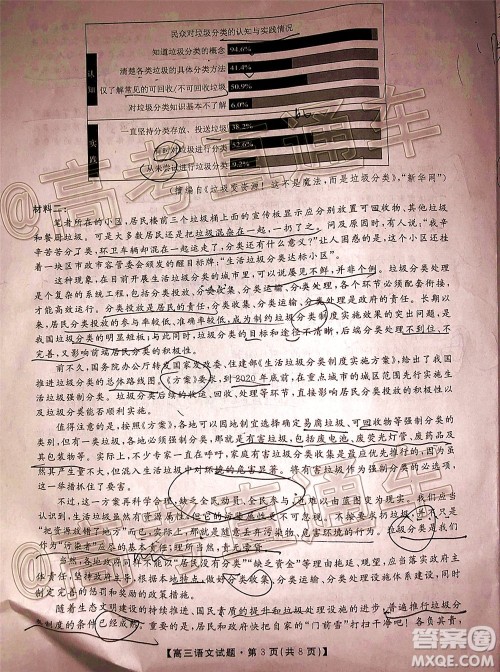 民众对垃圾分类的认知与实践情况
知道垃圾分类的概念 94.6%
清楚各类垃圾的具体分类方法 41.4%
仅了解常见的可回收/不可回收垃圾 50.9%
对垃圾分类知识基本不了解 6.0%
一直坚持分类存放、投送垃圾 38.2%
有时对垃圾进行分类 52.6%
从未尝试进行垃圾分类 9.2%
认知
实践
(摘编自《垃圾变资源！这不是魔法，而是垃圾分类》，“新华网”)
材料二：
笔者所在的小区，居民楼前三个垃圾桶上面的宣传板显示应分别放置可回收物、其他垃圾
和餐厨垃圾。可是大多数居民还是把垃圾混杂在一起，一扔了之。问及原因时，有人说“我辛
辛苦苦分了类，环卫车辆却混在一起拉走了，分类还有什么意义？”让人困惑的是，这个小区还有
一块区市政市容管委会颁发的醒目标牌：“生活垃圾分类达标小区”。
这种现象，在目前开展生活垃圾分类的城市里，可以说屡见不鲜，并非个例。垃圾分类处理
是个复杂的系统工程，包括分类投放、分类收集、分类运输、分类处理等，各个环节必须配套衔接，
才能高效运行。分类投放是居民的责任，分类收集、分类运输、分类处理是政府的责任。长期以
来，居民分类投放的参与率较低、准确率较低，成为制约垃圾分类制度实施效果的突出问题，是我
国垃圾分类的明显短板；而垃圾分类的目标和途径不清晰，后端分类处理不到位、不
完善，又影响前端居民分类的积极性。
前不久，国务院办公厅转发国家发改委、住建部《生活垃圾分类制度实施方案》，给出了我国
推进垃圾分类的总体路线图。《方案》要求，到2020年底前，在重点城市的城区范围先行实施生
活垃圾强制分类。垃圾分类后续的收运、回收、处理等环节，直接关系到垃圾分类
投放是否能够顺利实施。
值得注意的是，按照《方案》，各地可以因地制宜选择确定易腐垃圾、可回收物等强制分类的
类别，但有一类垃圾，各地必须强制分类，那就是有害垃圾，包括废电池、废荧光灯管、废药品及
其包装物等。不少专家一直在呼吁，家庭有害垃圾分类收集是最应优先推行的，因为虽
然其产生量不大，但混入生活垃圾中对环境的危害显著。将有害垃圾作为强制分类的必选项，
这一举措抓住了要害。
不过，这一方案再科学合理，缺乏全民动员、全民参与，也难以由蓝图变为现实。我们应该
认识到，生活垃圾虽然有资源属性，但它的污染属性更不可忽视。
“把资源放错了地方”而已，也关系到污染、危害环境的行为。垃圾分类是我们
作为“污染者”应尽的基本责任，而不是额外，责无旁贷。
当然，各地政府也不能以“分类参与率低”“缺乏资金”等为理由一味抱怨、拖延，应切实负起
主体责任，坚持政府推动、全民参与，
制定完善的惩罚和奖励的政策措施。
随着生态文明建设的持续推进、国民素质的提升和垃圾分类处理，普遍推行垃圾分
类制度的条件已经成熟。只要我们把自家的“门前雪”打扫干净，
【高三语文试题·第3页(共8页)】
高考直通车
答案圈
MXQE.COM